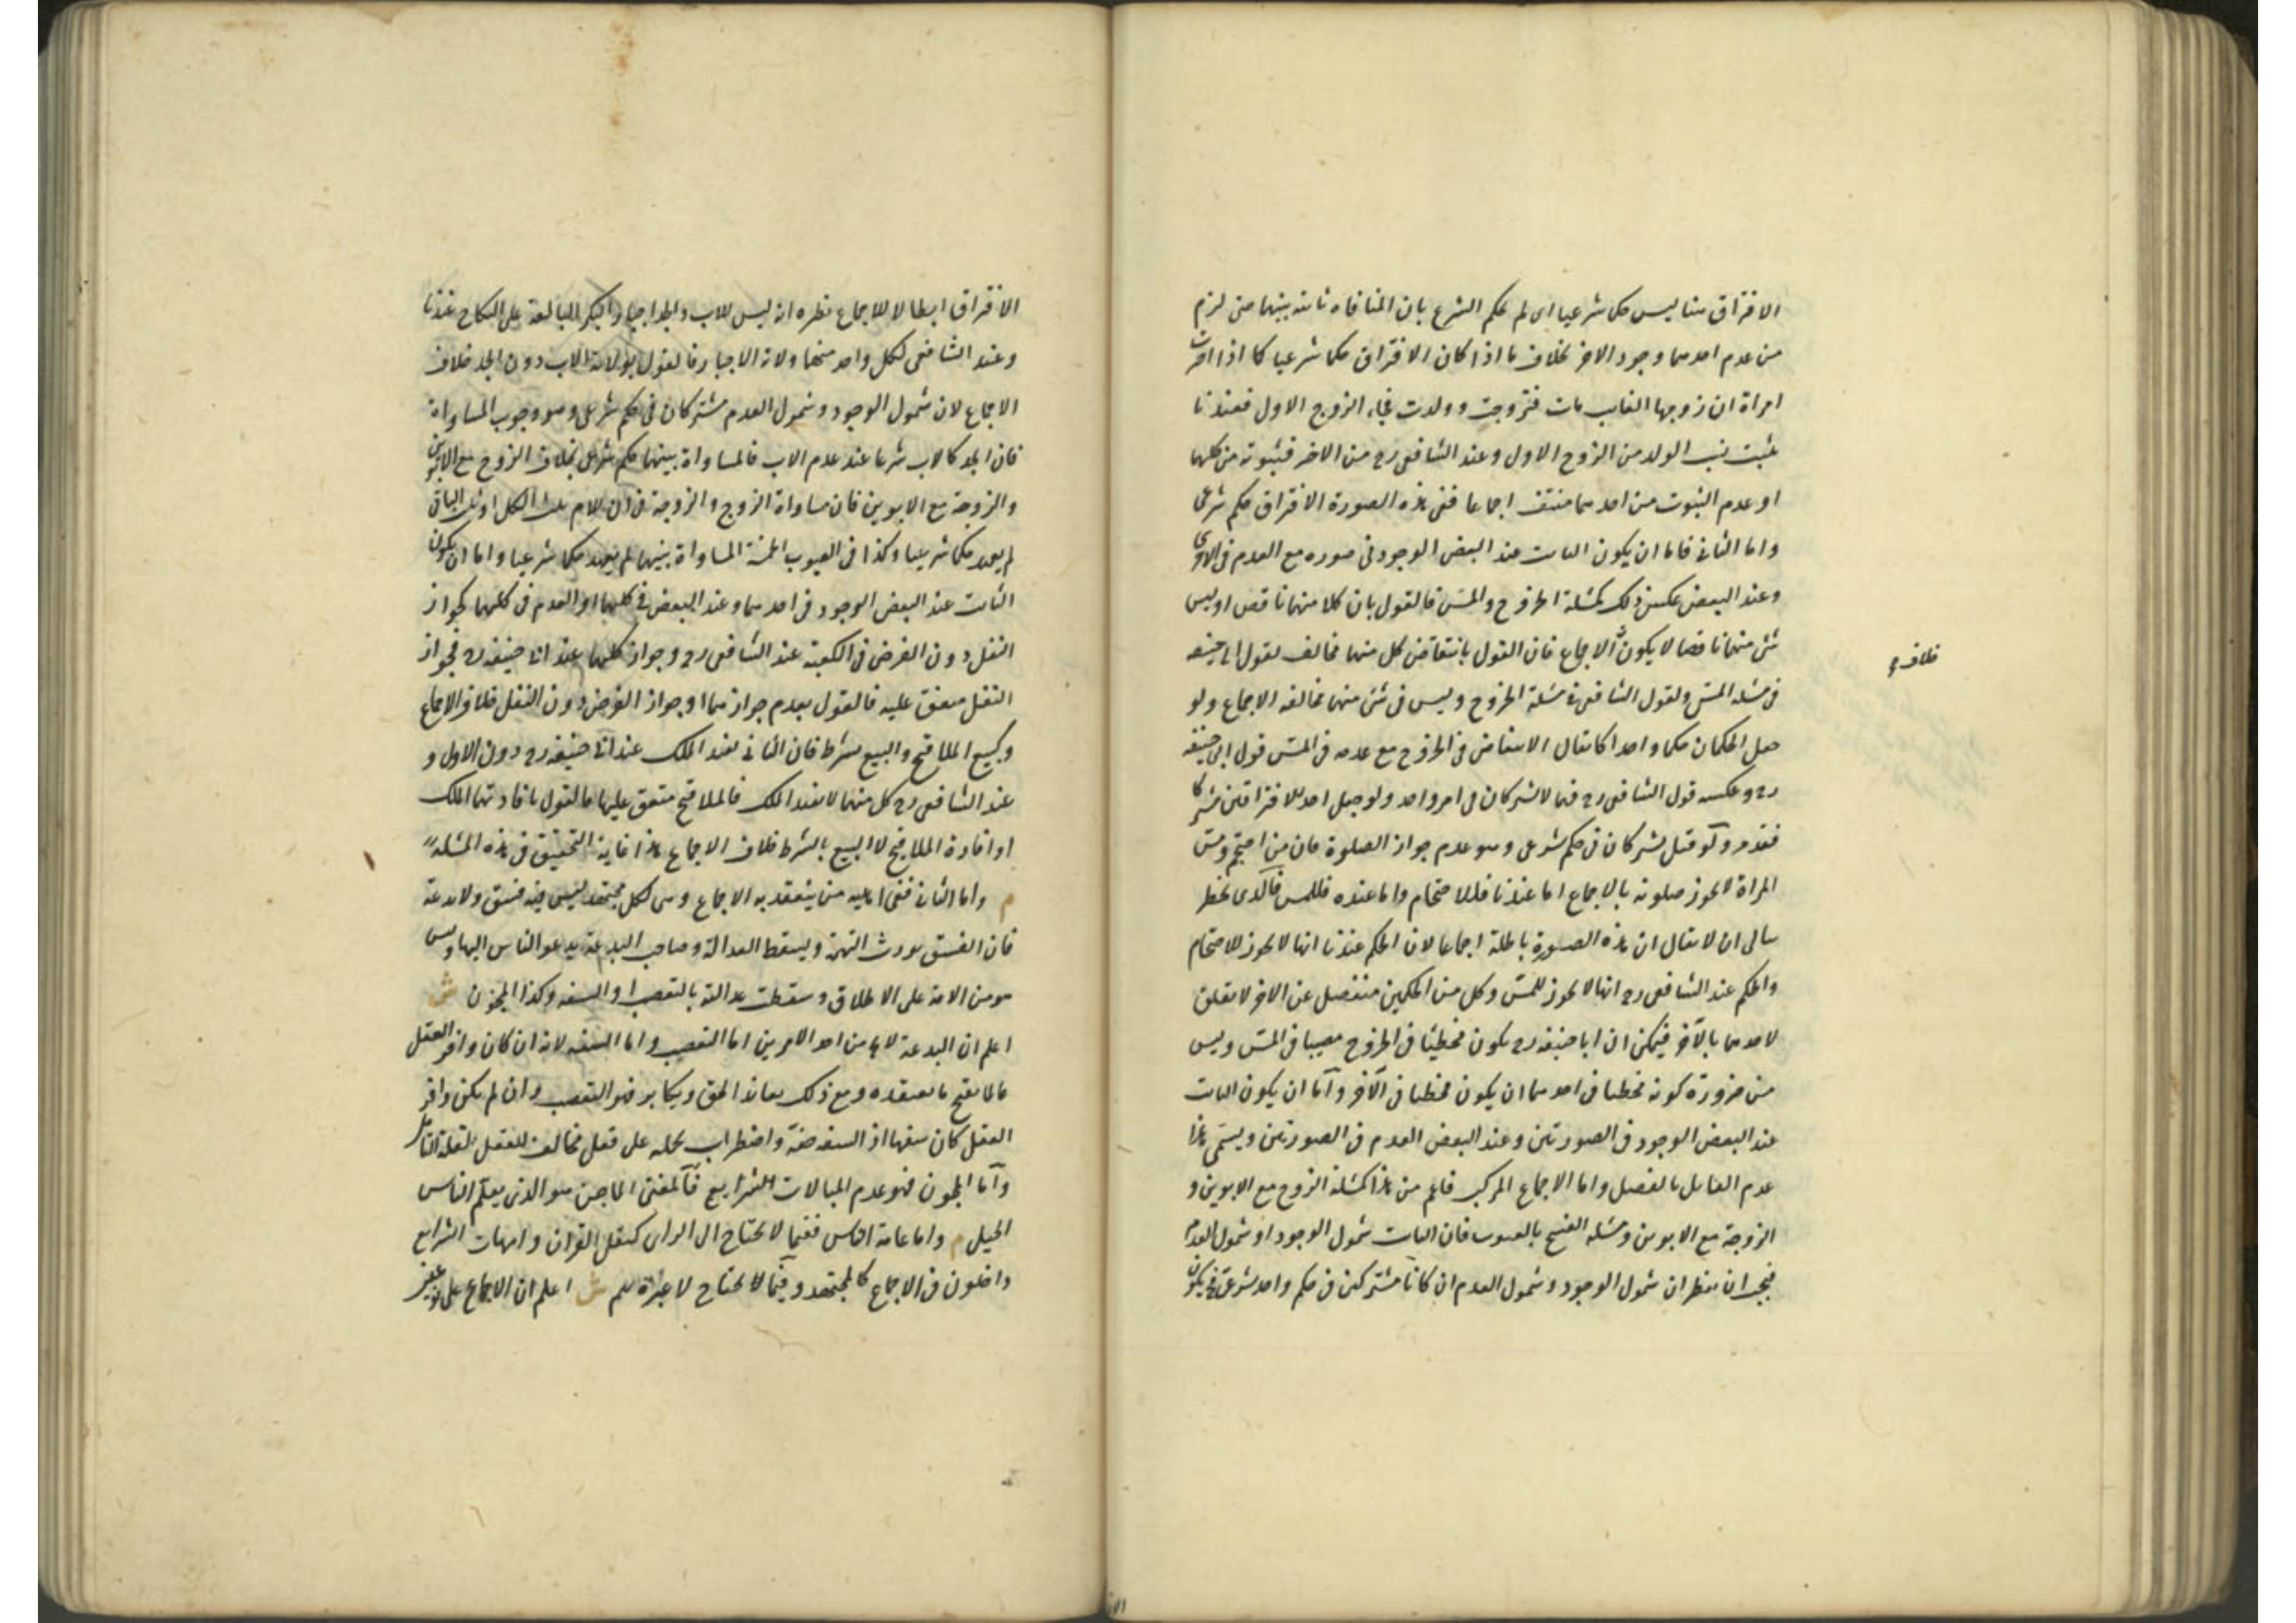 الافتراق هنا ليس حكما شرعيا اى لم يحكم الشرع بان المنافاة ثابتة بينهما حتى لزم
من عدم احدهما وجود الاخر بخلاف ما اذا كان الافتراق حكما شرعيا كما اذا اخبرت
امراة ان زوجها الغايب مات فتزوجت وولدت فجاء الزوج الاول فعندنا
يثبت نسب الولد من الزوج الاول وعند الشافعى رح من الاخر فثبوته من كليهما
او عدم الثبوت من احدهما منتف اجماعا ففى هذه الصورة الافتراق حكم شرعى
واما الثانى فاما ان يكون الثابت عند البعض الوجود فى صوره مع العدم فى الاخرى
وعند البعض عكس ذلك كمسئلة الخروج والمس فالقول بان كلا منهما ناقض او ليس
شئ منهما ناقضا لا يكون الاجماع فان القول بانتقاض كل منهما مخالف لقول ابى حنيفه
خلاف
فى مسئلة المس ولقول الشافعى فى مسئلة الخروج وليس فى شئ منهما مخالفة الاجماع ولو
جعل الحكمان حكما واحدا كما يقال الانتقاض فى الخروج مع عدمه فى المس قول ابى حنيفه
رح وعكسه قول الشافعى رح فهما لا يشتركان فى امر واحد ولو جعل احد الافتراقين مشتركا
فقد مر ولو قيل يشتركان فى حكم شرعى وهو عدم جواز الصلوة فان من احتجم ومس
المراة لا يجوز صلوته بالاجماع اما عندنا فللاحتجام واما عنده فللمس فالذى يخطر
ببالى ان لا يقال ان هذه الصورة باطلة اجماعا لان الحكم عندنا انها لا يجوز للاحتجام
والحكم عند الشافعى رح انها لا يجوز للمس وكل من الحكمين منفصل عن الاخر لا تعلق
لاحدهما بالآخر فيمكن ان ابا حنيفه رح يكون مخطيئا فى الخروج مصيبا فى المس وليس
من ضرورة كونه مخطيا فى احدهما ان يكون مخطيا فى الآخر وأما ان يكون الثابت
عند البعض الوجود فى الصورتين وعند البعض العدم فى الصورتين ويسمى هذا
عدم القايل بالفصل واما الاجماع المركب فاعم من هذا كمسئلة الزوج مع الابوين و
الزوجة مع الابوين ومسئلة الفسخ بالعيوب فان الثابت شمول الوجود او شمول العدم
فيجب ان ينظر ان شمول الوجود وشمول العدم ان كانا مشتركين فى حكم واحد شرعى يكون
الافتراق ابطالا للاجماع نظيره انه ليس للاب والجد اجبار البكر البالغة على النكاح عندنا
وعند الشافعى لكل واحد منهما ولاية الاجبار فالقول بولاية الاب دون الجد خلاف
الاجماع لان شمول الوجود وشمول العدم مشتركان فى حكم شرعى وهو وجوب المساواة
فان الجد كالاب شرعا عند عدم الاب فالمساواة بينهما حكم شرعى بخلاف الزوج مع الابوين
والزوجة مع الابوين فان مساواة الزوج والزوجة فى ان للام ثلث الكل او ثلث الباقى
لم يعهد حكما شرعيا وكذا فى العيوب الخمسة المساواة بينهما لم يعهد حكما شرعيا واما ان يكون
الثابت عند البعض الوجود فى احدهما وعند البعض فى كليهما او العدم فى كليهما كجواز
النفل دون الفرض فى الكعبة عند الشافعى رح وجواز كليهما عند ابى حنيفه رح فجواز
النفل متفق عليه فالقول بعدم جوازهما او جواز الفرض دون النفل خلاف الاجماع
وكبيع الملاقيح والبيع بشرط فان الثانى يفيد الملك عند ابى حنيفه رح دون الاول و
عند الشافعى رح كل منهما لا يفيد الملك فالملاقيح متفق عليها فالقول بافادتهما الملك
او افادة الملاقيح لا البيع بالشرط خلاف الاجماع هذا غاية التحقيق فى هذه المسئلة
م واما الثانى ففى اهلية من ينعقد به الاجماع وهى لكل مجتهد ليس فيه فسق ولا بدعة
فان الفسق يورث التهمة ويسقط العدالة وصاحب البدعة يدعو الناس اليها وليس
هو من الامة على الاطلاق وسقطت عدالته بالتعصب او السفه وكذا المجون ش
اعلم ان البدعة لا يخ من احد الامرين اما التعصب واما السفه لانه ان كان وافر العقل
عالما بقبح ما يعتقده ومع ذلك يعاند الحق ويكابر فهو التعصب وان لم يكن وافر
العقل كان سفها اذ السفه خفة واضطراب يحمله على فعل مخالف للعقل لقلة التامل
وأما المجون فهو عدم المبالات الشرايع فالمفتى الماجن هو الذى يعلم الناس
الحيل م واما عامة الناس ففيما لا يحتاج الى الراى كنقل القران وامهات الشرايع
داخلون فى الاجماع كالمجتهد وفيما لا يحتاج لا عبرة بهم ش اعلم ان الاجماع على نوعين